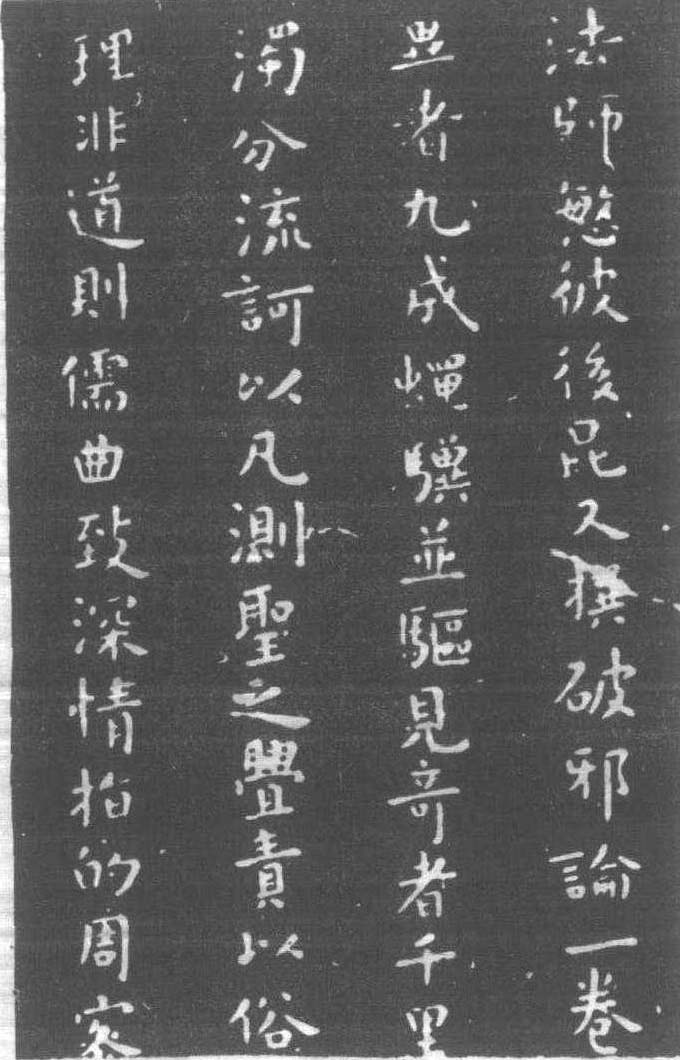 法師愍彼後昆又撰破邪論一卷
異者九成蠅驥並驅見奇者千里
濁分流訶以凡測聖之舋責以俗
理非道則儒曲致深情指的周密